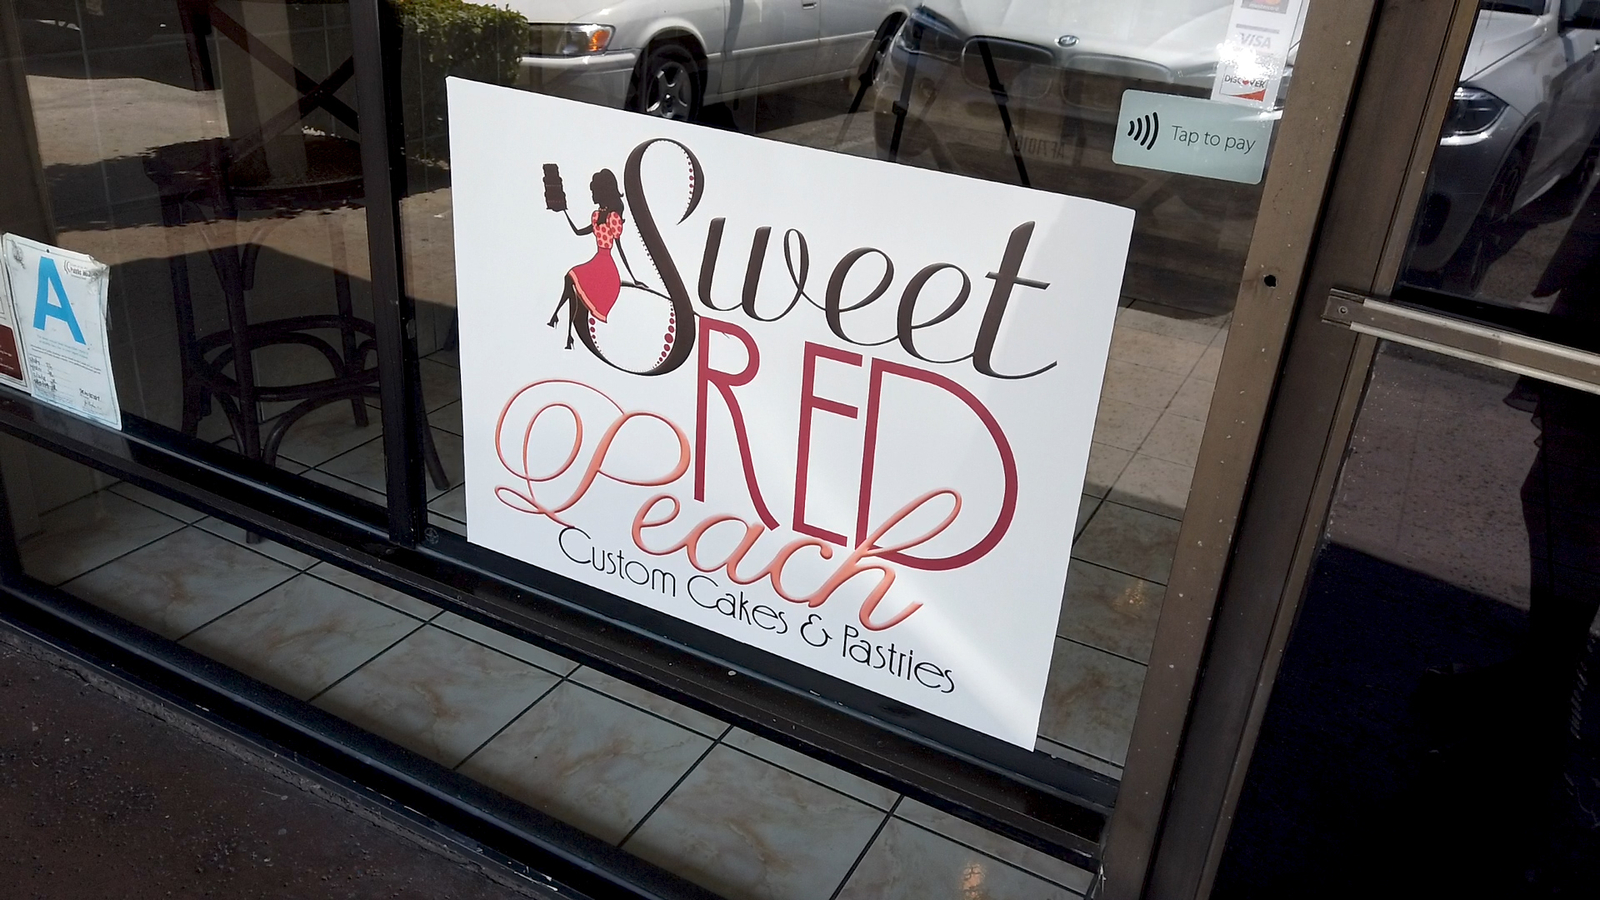 Sweet
RED
Peach
Custom Cakes & Pastries
A
VISA
DISCOVER
Tap to pay